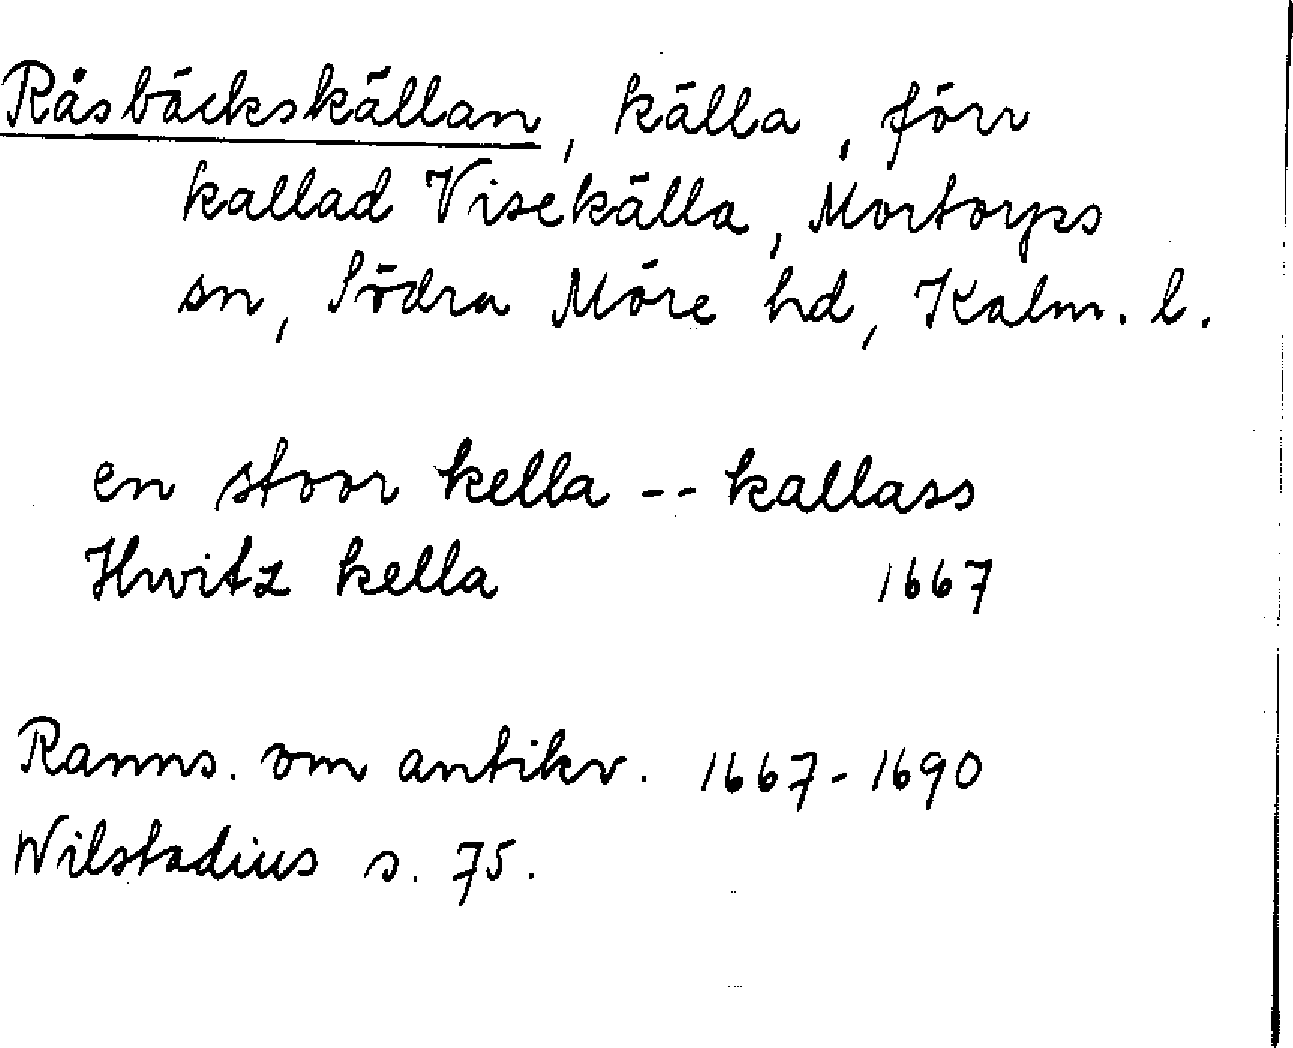 Råsbäckskällan, källa, förr
kallad Visekälla, Mortorps
sn, Södra Möre hd, Kalm. l.
en stoor kella -- kallass
Hwitz kella 1667
Ranns. om antikv. 1667-1690
Wilstadius s. 75.